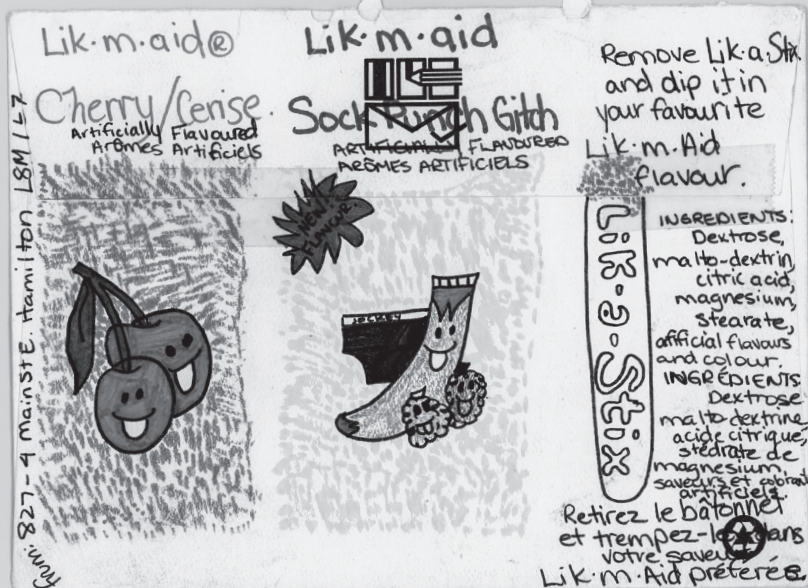 Lik·m·aid®
Cherry/Cerise
Artificially Flavoured
Arômes Artificiels
Lik·m·aid
Sock Punch Gitch
ARTIFICIALLY FLAVOURED
ARÔMES ARTIFICIELS
NEW!
FLAVOUR
JOCKEY
Remove Lik·a·Stix
and dip it in
your favourite
Lik·m·Aid
flavour.
Lik-a-Stix
INGREDIENTS:
Dextrose,
malto-dextrin,
citric acid,
magnesium,
stearate,
artificial flavours
and colour.
INGRÉDIENTS
Dextrose
malto-dextrine
acide citrique,
stédrate de
magnesium.
saveurs et colorant
artificiels.
Retirez le bâtonnet
et trempez-le dans
votre saveur
Lik·m·Aid préférée
from: 827-4 Main St E. Hamilton L8M 1L7